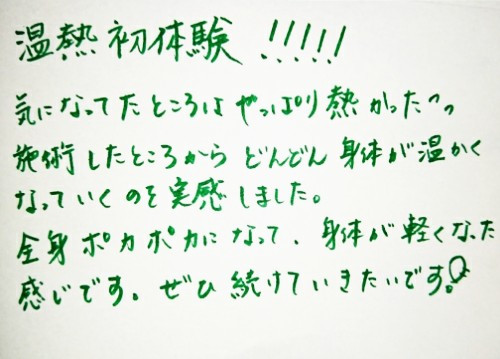 温熱初体験 !!!!!
気になってたところはやっぱり熱かったっっ
施術したところからどんどん身体が温かく
なっていくのを実感しました。
全身ポカポカになって、身体が軽くなった
感じです。ぜひ続けていきたいです!